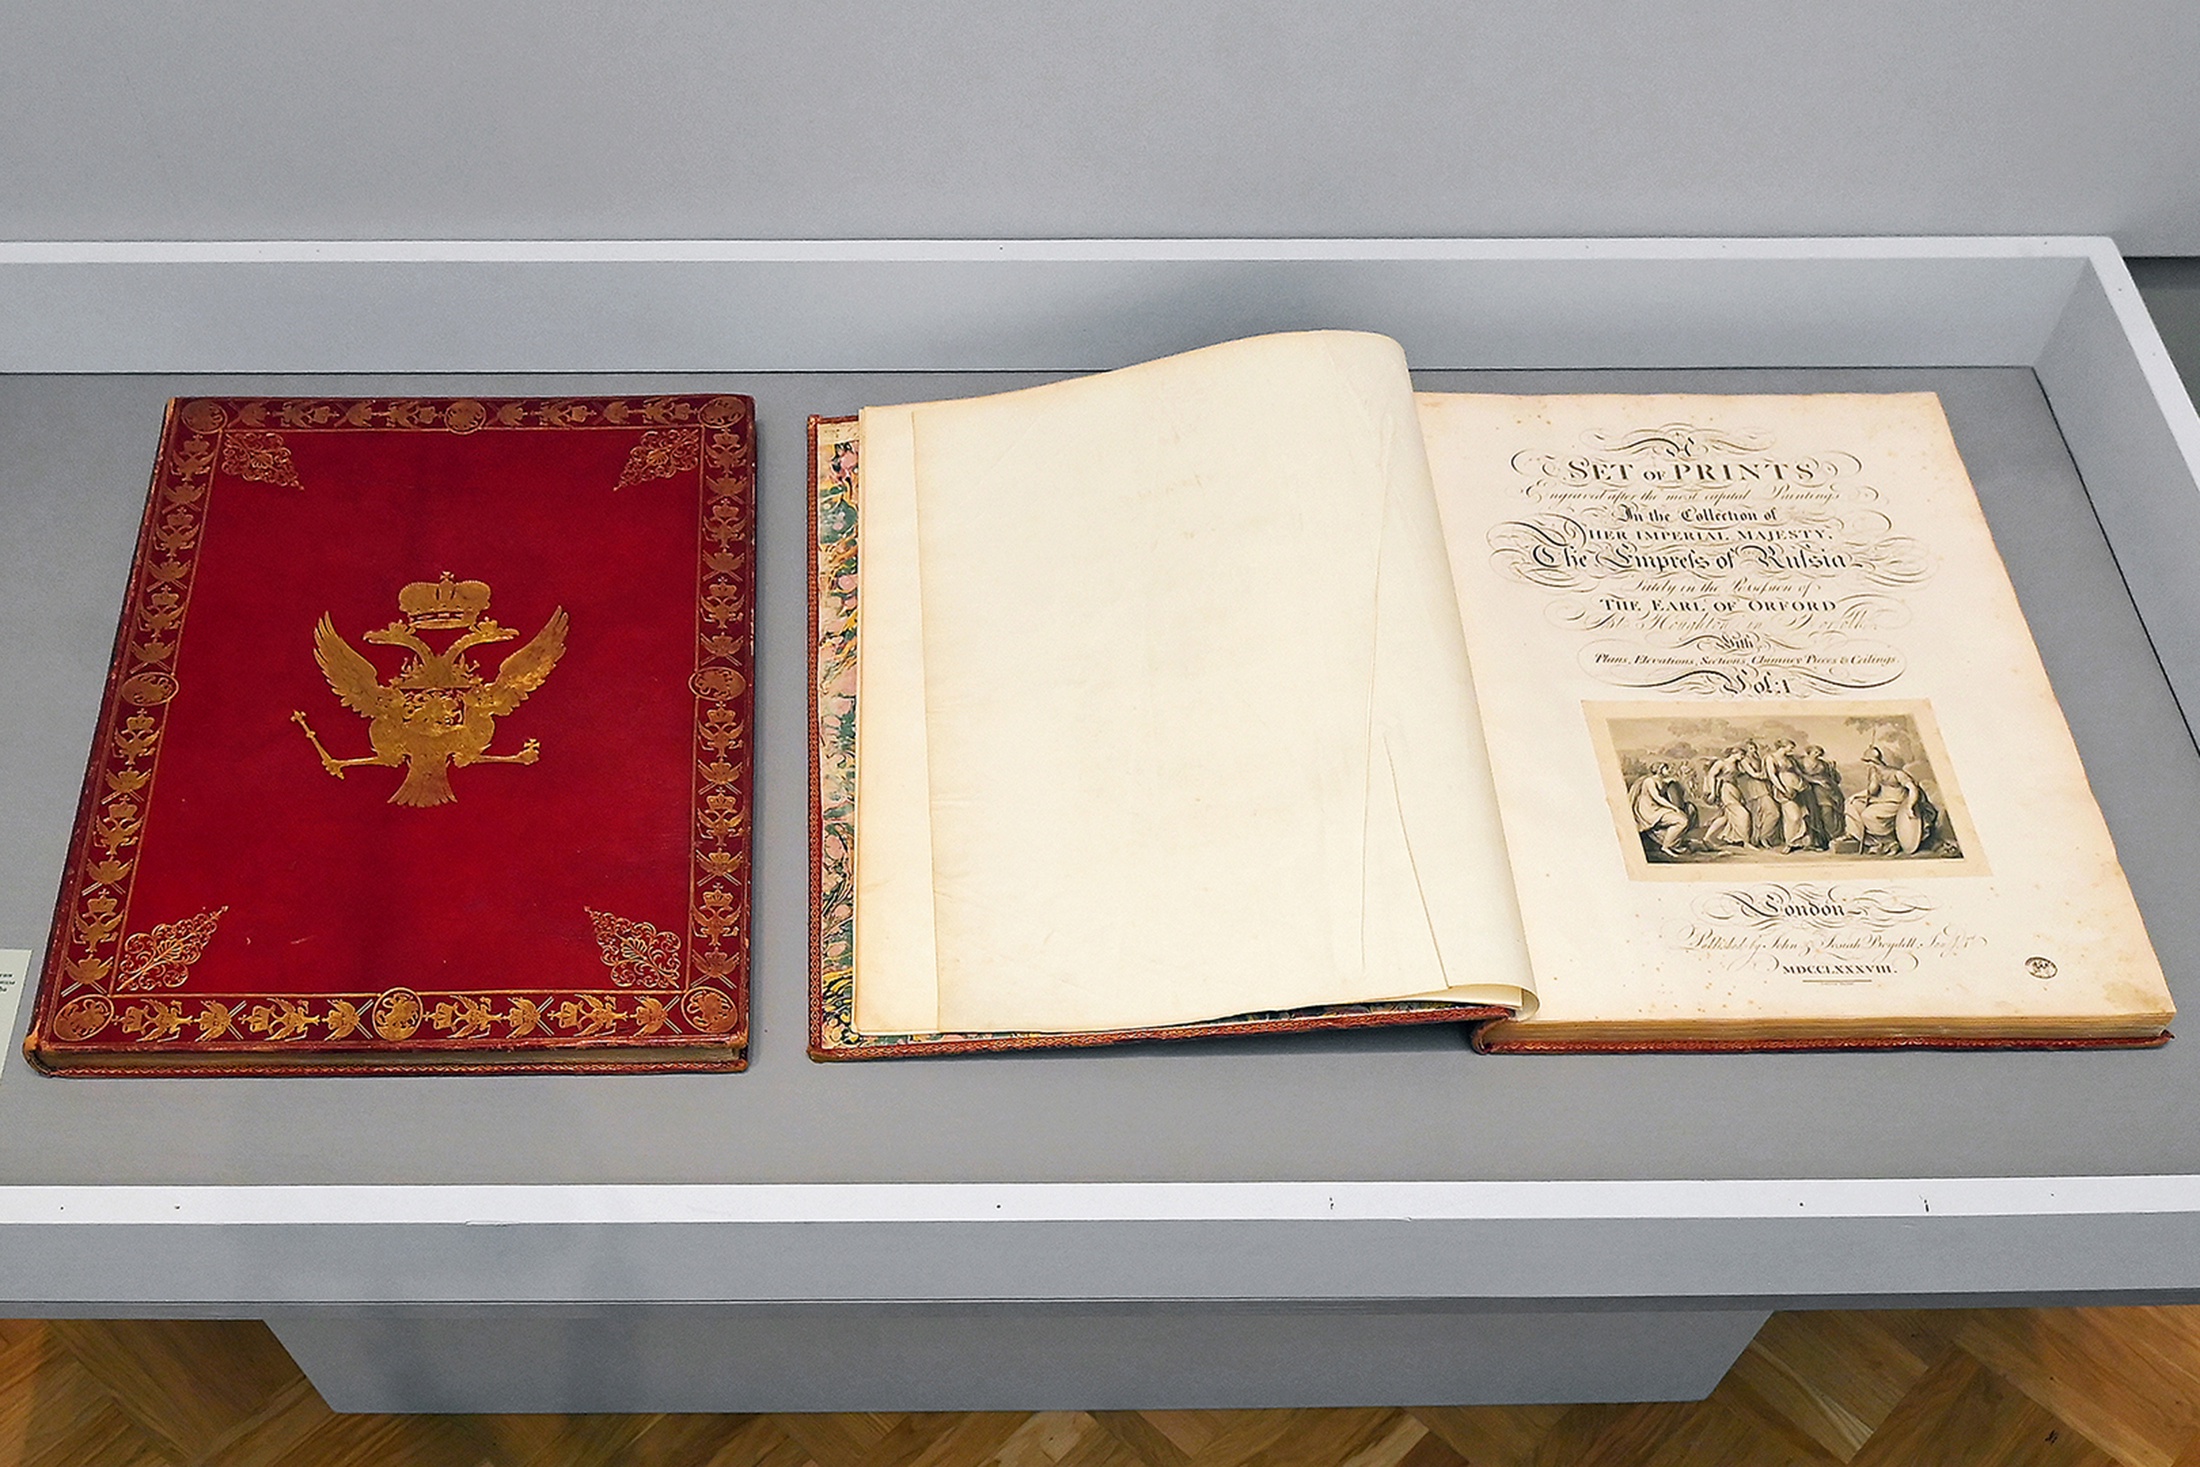 A
SET OF PRINTS
Engraved after the most capital Paintings
In the Collection of
HER IMPERIAL MAJESTY,
The Empreſs of Ruſsia
Lately in the Poſseſsion of
THE EARL OF ORFORD
At Houghton in Norfolk
With
Plans, Elevations, Sections, Chimney Pieces & Ceilings.
Vol: I
London
Published by John & Josiah Boydell,
MDCCLXXXVIII.